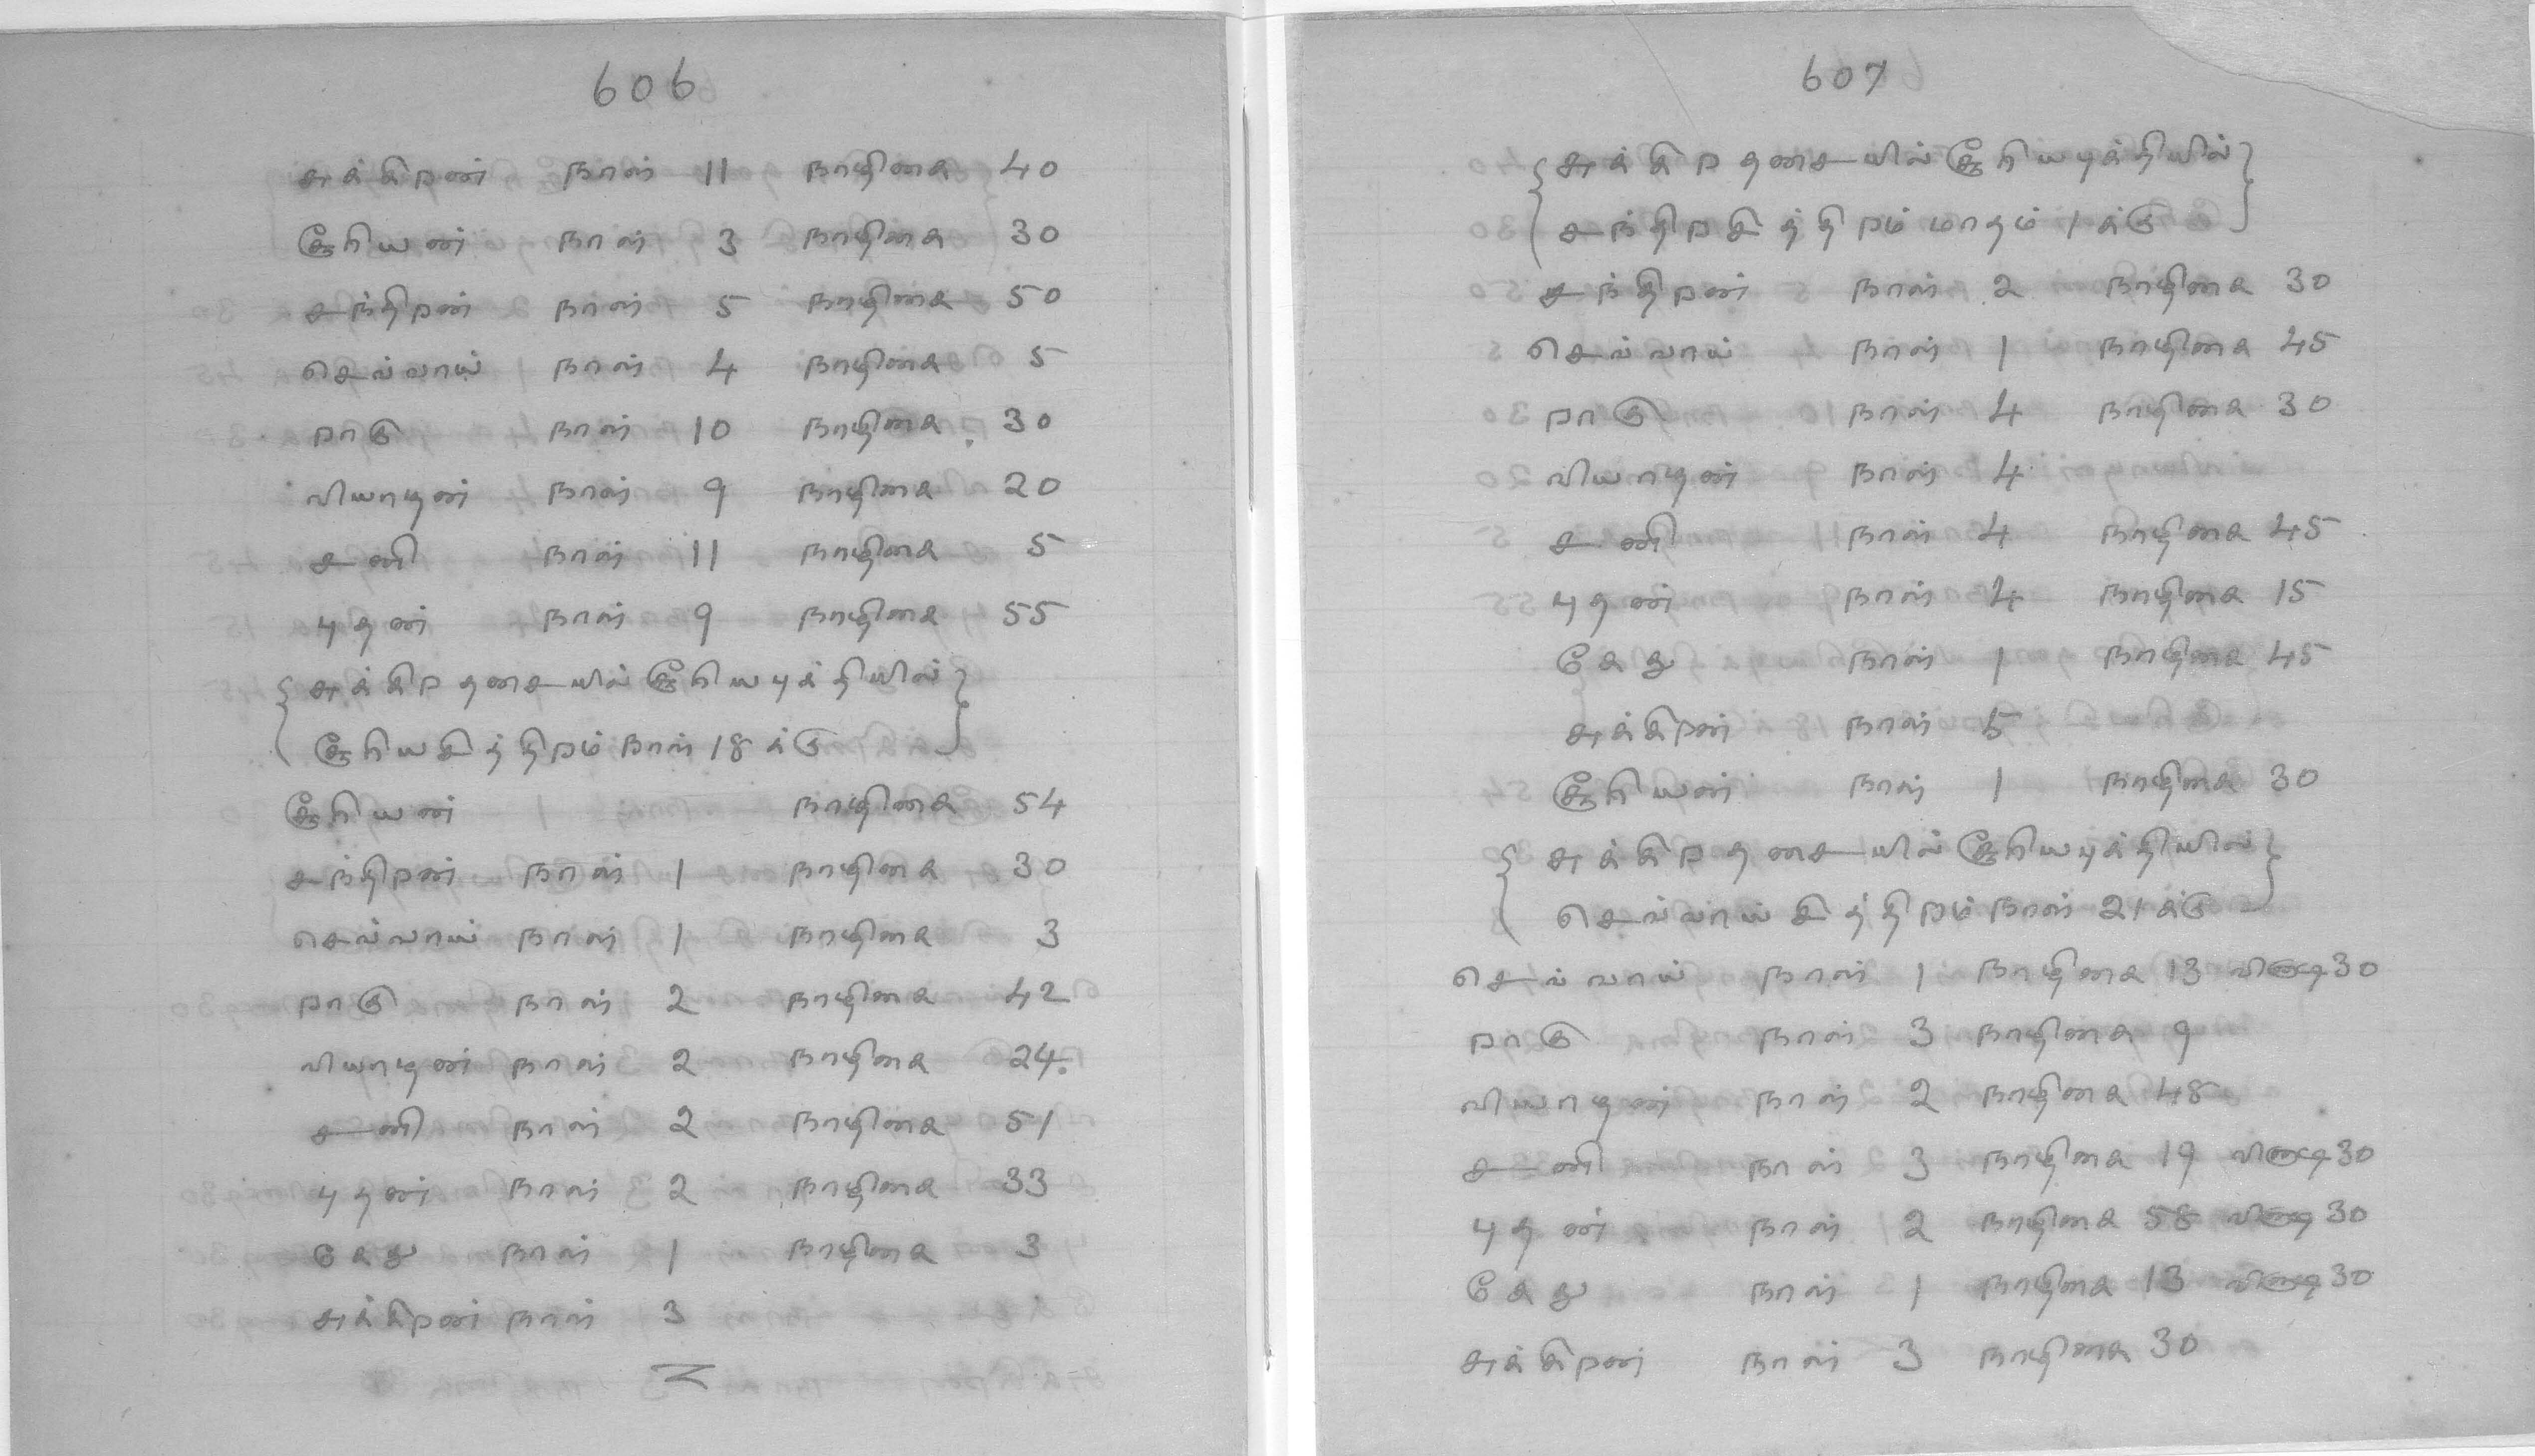 606
சுக்கிறன் நாள் 11 நாழிகை 40
சூரியன் நாள் 3 நாழிகை 30
சந்திறன் நாள் 5 நாழிகை 50
செவ்வாய் நாள் 4 நாழிகை 5
றாகு நாள் 10 நாழிகை 30
வியாழன் நாள் 9 நாழிகை 20
சனி நாள் 11 நாழிகை 5
புதன் நாள் 9 நாழிகை 55
{சுக்கிற தசையில் சூரியபுக்தியில்}
{சூரியசித்திறம் நாள் 18 க்கு}
சூரியன் நாழிகை 54
சந்திறன் நாள் 1 நாழிகை 30
செவ்வாய் நாள் 1 நாழிகை 3
றாகு நாள் 2 நாழிகை 42
வியாழன் நாள் 2 நாழிகை 24
சனி நாள் 2 நாழிகை 51
புதன் நாள் 2 நாழிகை 33
கேது நாள் 1 நாழிகை 3
சுக்கிறன் நாள் 3
607
{சுக்கிற தசையில் சூரியபுக்தியில்}
{சந்திறசித்திறம் மாதம் 1 க்கு}
சந்திறன் நாள் 2 நாழிகை 30
செவ்வாய் நாள் 1 நாழிகை 45
றாகு நாள் 4 நாழிகை 30
வியாழன் நாள் 4
சனி நாள் 4 நாழிகை 45
புதன் நாள் 4 நாழிகை 15
கேது நாள் 1 நாழிகை 45
சுக்கிறன் நாள் 5
சூரியன் நாள் 1 நாழிகை 30
{சுக்கிற தசையில் சூரியபுக்தியில்}
{செவ்வாய்சித்திறம் நாள் 21 க்கு}
செவ்வாய் நாள் 1 நாழிகை 13 வினாடி 30
றாகு நாள் 3 நாழிகை 9
வியாழன் நாள் 2 நாழிகை 48
சனி நாள் 3 நாழிகை 19 வினாடி 30
புதன் நாள் 2 நாழிகை 58 வினாடி 30
கேது நாள் 1 நாழிகை 13 வினாடி 30
சுக்கிறன் நாள் 3 நாழிகை 30